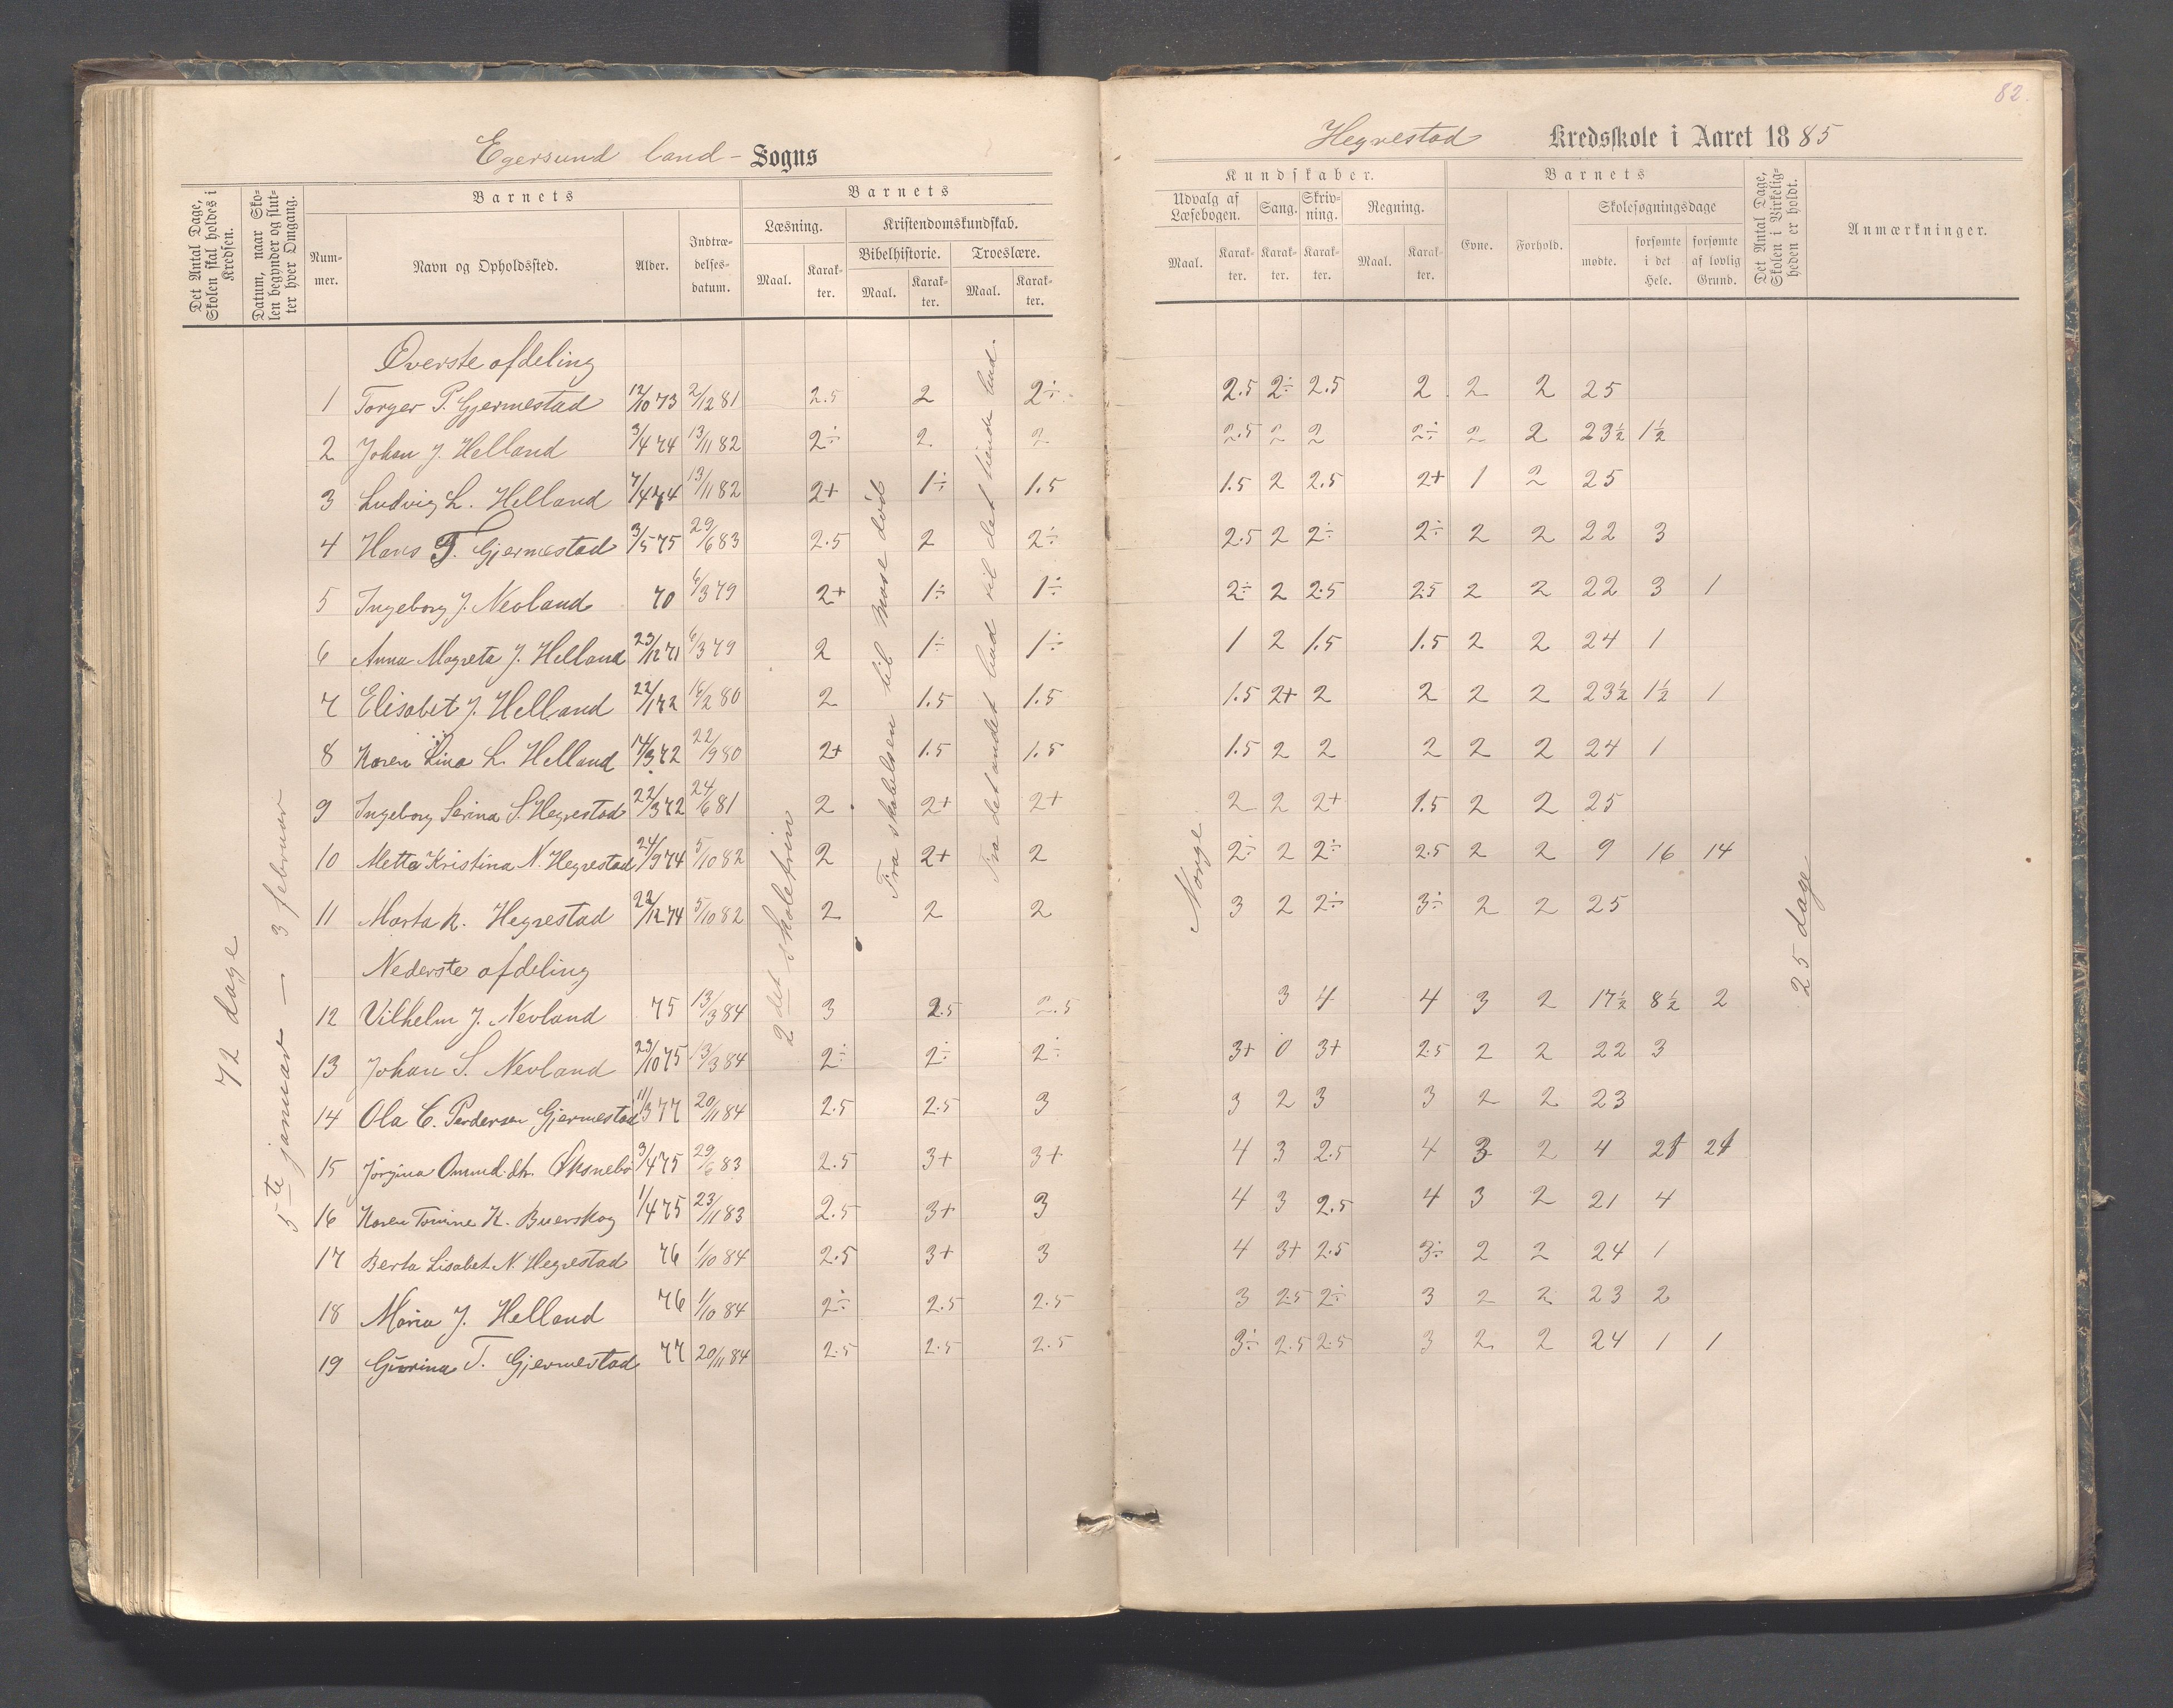 82.
Egersund land - Sogns
Hegrestad Kredsskole i Aaret 1885
Det Antal Dage, Skolen skal holdes i Kredsen.
Datum, naar Skolen begynder og slutter hver Omgang.
Barnets
Nummer.
Navn og Opholdssted.
Alder.
Indtrædelsesdatum.
Barnets
Læsning.
Maal.
Karakter.
Kristendomskundskab.
Bibelhistorie.
Maal.
Karakter.
Troeslære.
Maal.
Karakter.
Kundskaber.
Udvalg af Læsebogen.
Maal.
Karakter.
Sang.
Karakter.
Skrivning.
Karakter.
Regning.
Maal.
Karakter.
Barnets
Evne.
Forhold.
Skolesøgningsdage
mødte.
forsømte i det Hele.
forsømte af lovlig Grund.
Det Antal Dage, Skolen i Virkeligheden er holdt.
Anmærkninger.
72 dage
5te januar — 3 februar
2det skoletrin
Fra skabelsen til Mose død
Fra det andet bud til det tiende bud.
Norge
25 dage
Øverste afdeling
1 Torger P. Gjermestad 12/10 73 2/12 81 2.5 2 2÷ 2.5 2÷ 2.5 2 2 2 25
2 Johan J. Helland 3/4 74 13/11 82 2÷ 2 2 2.5 2 2 2÷ 2 2 23½ 1½
3 Ludvig L. Helland 7/4 74 13/11 82 2+ 1÷ 1.5 1.5 2 2.5 2+ 1 2 25
4 Hans T. Gjermestad 3/5 75 29/6 83 2.5 2 2÷ 2.5 2 2÷ 2÷ 2 2 22 3
5 Ingeborg J. Nevland 70 6/3 79 2+ 1÷ 1÷ 2÷ 2 2.5 2.5 2 2 22 3 1
6 Anna Magreta J. Helland 23/12 71 6/3 79 2 1÷ 1÷ 1 2 1.5 1.5 2 2 24 1
7 Elisabet J. Helland 22/1 72 16/2 80 2 1.5 1.5 1.5 2+ 2 2 2 2 23½ 1½ 1
8 Karen Lina L. Helland 14/3 72 22/9 80 2+ 1.5 1.5 1.5 2 2 2 2 2 24 1
9 Ingeborg Serina S. Hegrestad 22/3 72 24/6 81 2 2+ 2+ 2 2 2+ 1.5 2 2 25
10 Metta Kristina N. Hegrestad 24/9 74 5/10 82 2 2+ 2 2÷ 2 2÷ 2.5 2 2 9 16 14
11 Marta K. Hegrestad 22/12 74 5/10 82 2 2 2 3 2 2÷ 3÷ 2 2 25
Nederste afdeling
12 Vilhelm J. Nevland 75 13/3 84 3 2.5 2.5 3 4 4 3 2 17½ 8½ 2
13 Johan S. Nevland 23/10 75 13/3 84 2÷ 2÷ 2÷ 3+ 0 3+ 2.5 2 2 22 3
14 Ola C. Pedersen Gjermestad 11/3 77 20/11 84 2.5 2.5 3 3 2 3 3 2 2 23
15 Jørgina Ommd. dtr. 3/4 75 29/6 83 2.5 3+ 3+ 4 3 2.5 4 3 2 4 21 21
16 Karen Tomine K. Buerskog 1/4 75 23/11 83 2.5 3+ 3 4 3 2.5 4 3 2 21 4
17 Berta Lisabet N. Hegrestad 76 1/10 84 2.5 3+ 3 4 3+ 2.5 3÷ 2 2 24 1
18 Maria J. Helland 76 1/10 84 2÷ 2.5 2.5 3 2.5 2÷ 3 2 2 23 2
19 Gurina T. Gjermestad 77 20/11 84 2.5 2.5 2.5 3÷ 2.5 2.5 3 2 2 24 1 1